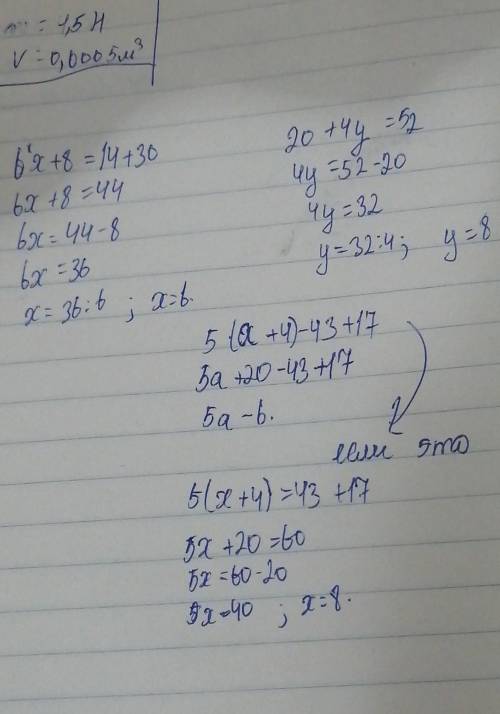 = 1,5 Н
V = 0,0005 м³
6x + 8 = 14 + 30
6x + 8 = 44
6x = 44 - 8
6x = 36
x = 36 : 6 ; x = 6.
20 + 4y = 52
4y = 52 - 20
4y = 32
y = 32 : 4 ; y = 8
5(a + 4) - 43 + 17
5a + 20 - 43 + 17
5a - 6.
если это
5(x + 4) = 43 + 17
5x + 20 = 60
5x = 60 - 20
5x = 40 ; x = 8.